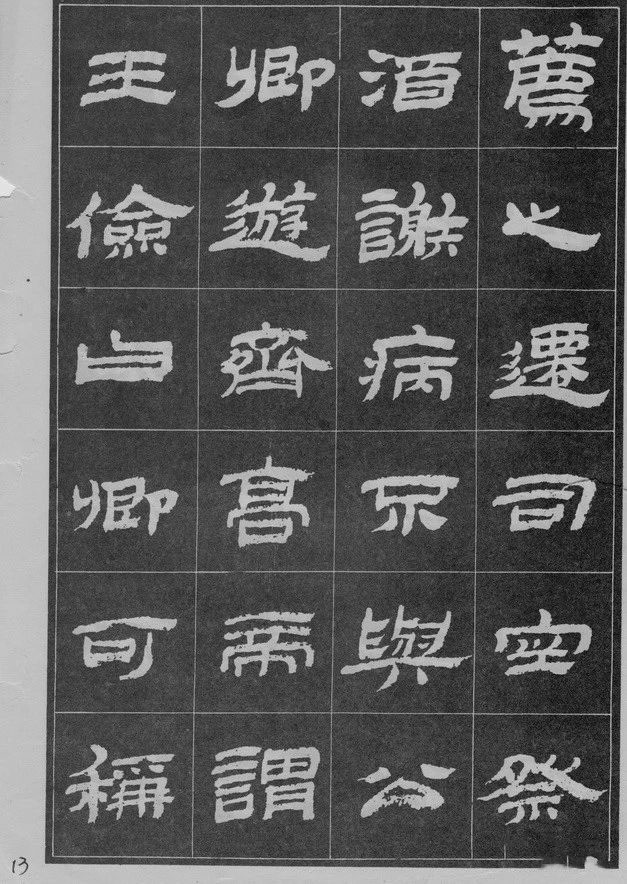 薦之遷司空祭
酒謝病不與公
卿遊齊高帝謂
王儉曰卿可稱
13